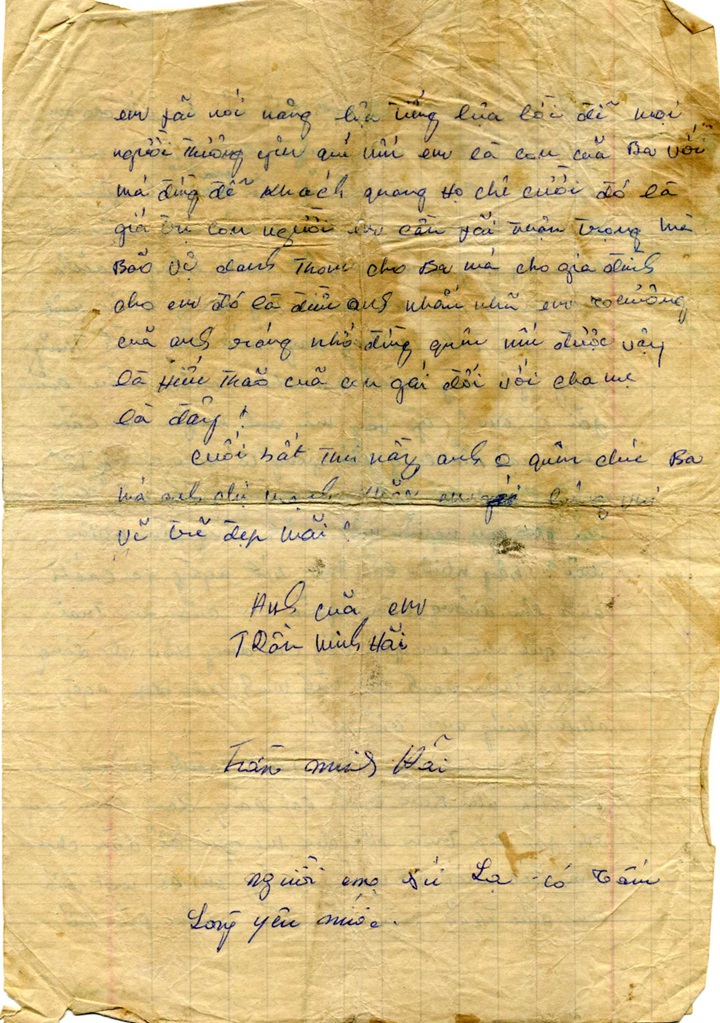 em phãi nói năng lịu tiếng lựa lời đễ mọi
người thương yêu quí mến em là con cuã Ba với
má đừng để khách quang họ chê cười đó là
giá trị con người em cần phãi thận trọng mà
Bảo vệ danh thơm cho Ba má cho gia đình
cho em đó là điều anh nhắn nhũ em
cuã anh ráng nhớ đừng quên nếu được vậy
là Hiếu Thão cuã con gái đối với cha mẹ
là đấy!
cuối bất thư nầy anh o quên chúc Ba
má anh chị mạnh em
vẽ trẽ đẹp mãi!
Anh cuã em
Trần Minh Hãi
Trần Minh Hãi
người Lạ có tấm
Lòng yêu nước.